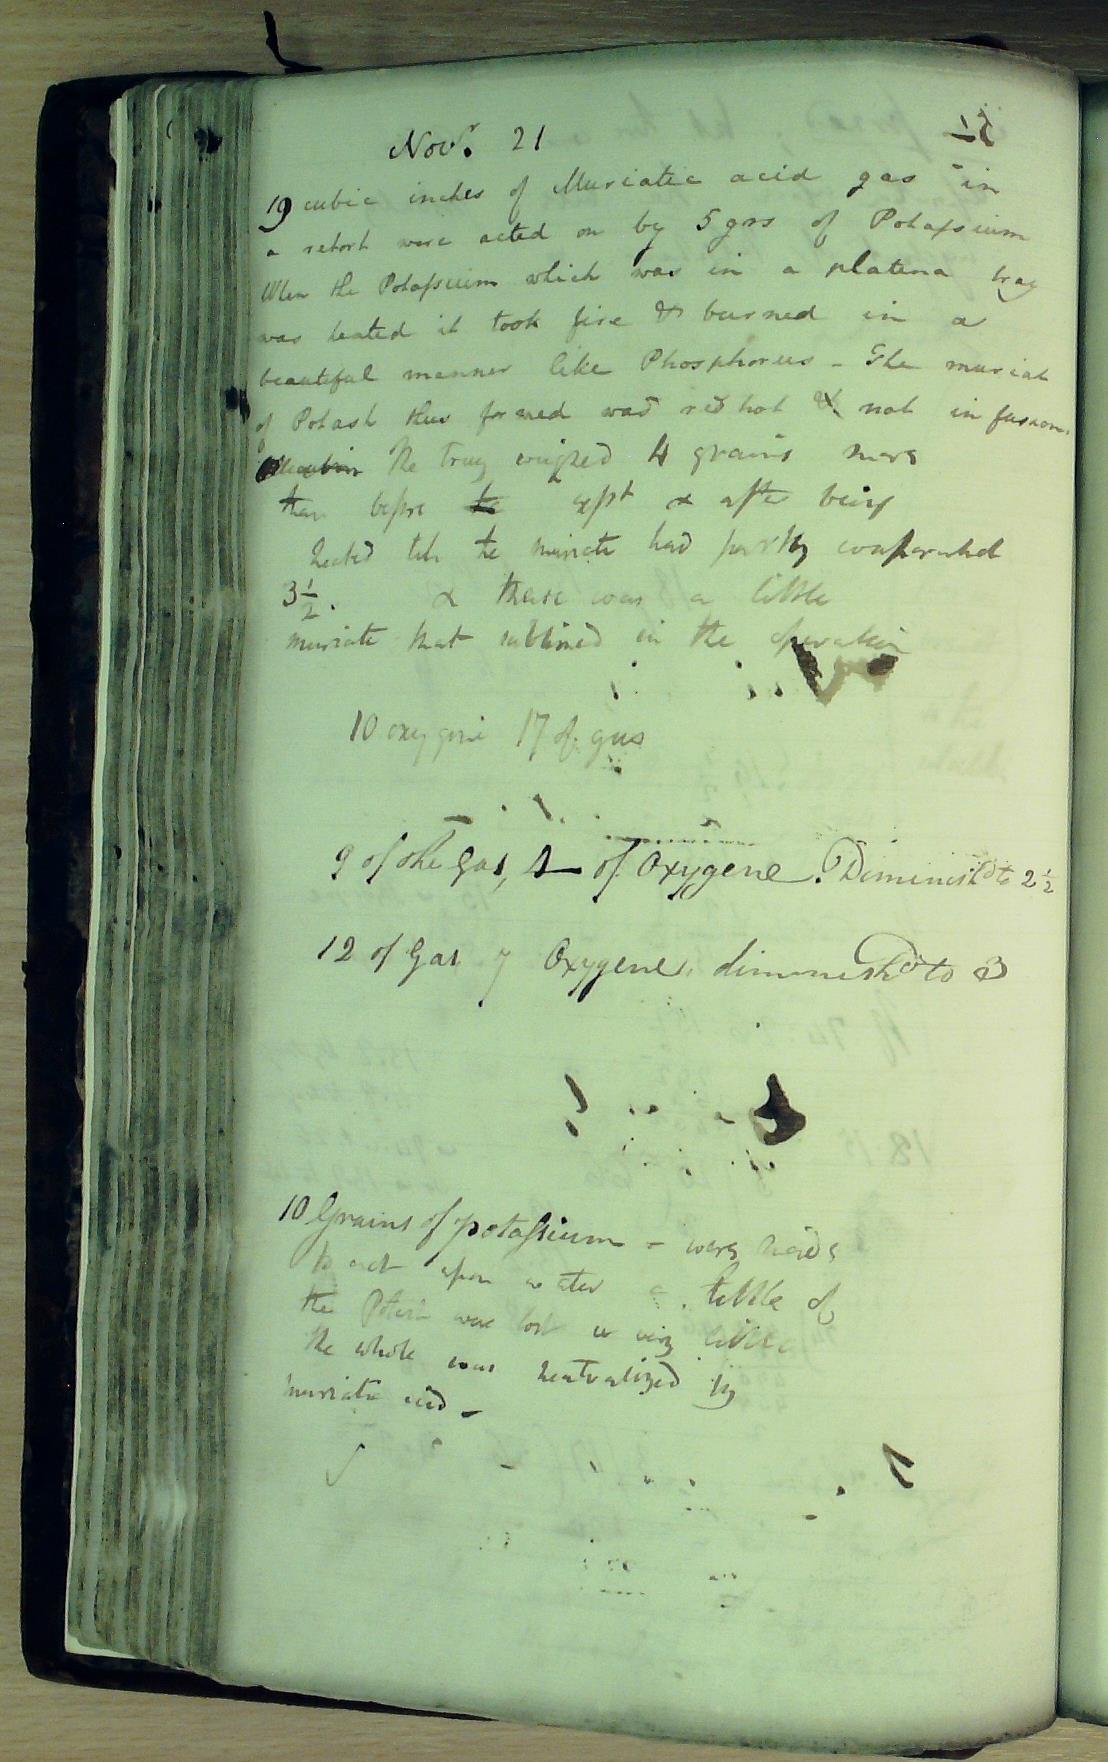 Novr. 21
19 cubic inches of Muriatic acid gas in
a retort were acted on by 5 grs of Potassium
When the Potassium which was in a platina tray
was heated it took fire & burned in a
beautiful manner like Phosphorus - The muriat
of Potash thus formed was red hot & not in fusion
The tray weighed 4 grains more
than before the expt & after being
heated till the muriate had partly evaporated
3 1/2. & there was a little
muriate that sublimed in the operation
10 oxygene 17 of gas
9 of the Gas, of Oxygene. Diminishd to 2 1/2
12 of Gas 7 Oxygene, diminishd to 3
10 Grains of potassium - were made
to act upon water a little of
the Potash was lost very little
the whole was neutralized by
muriatic acid -